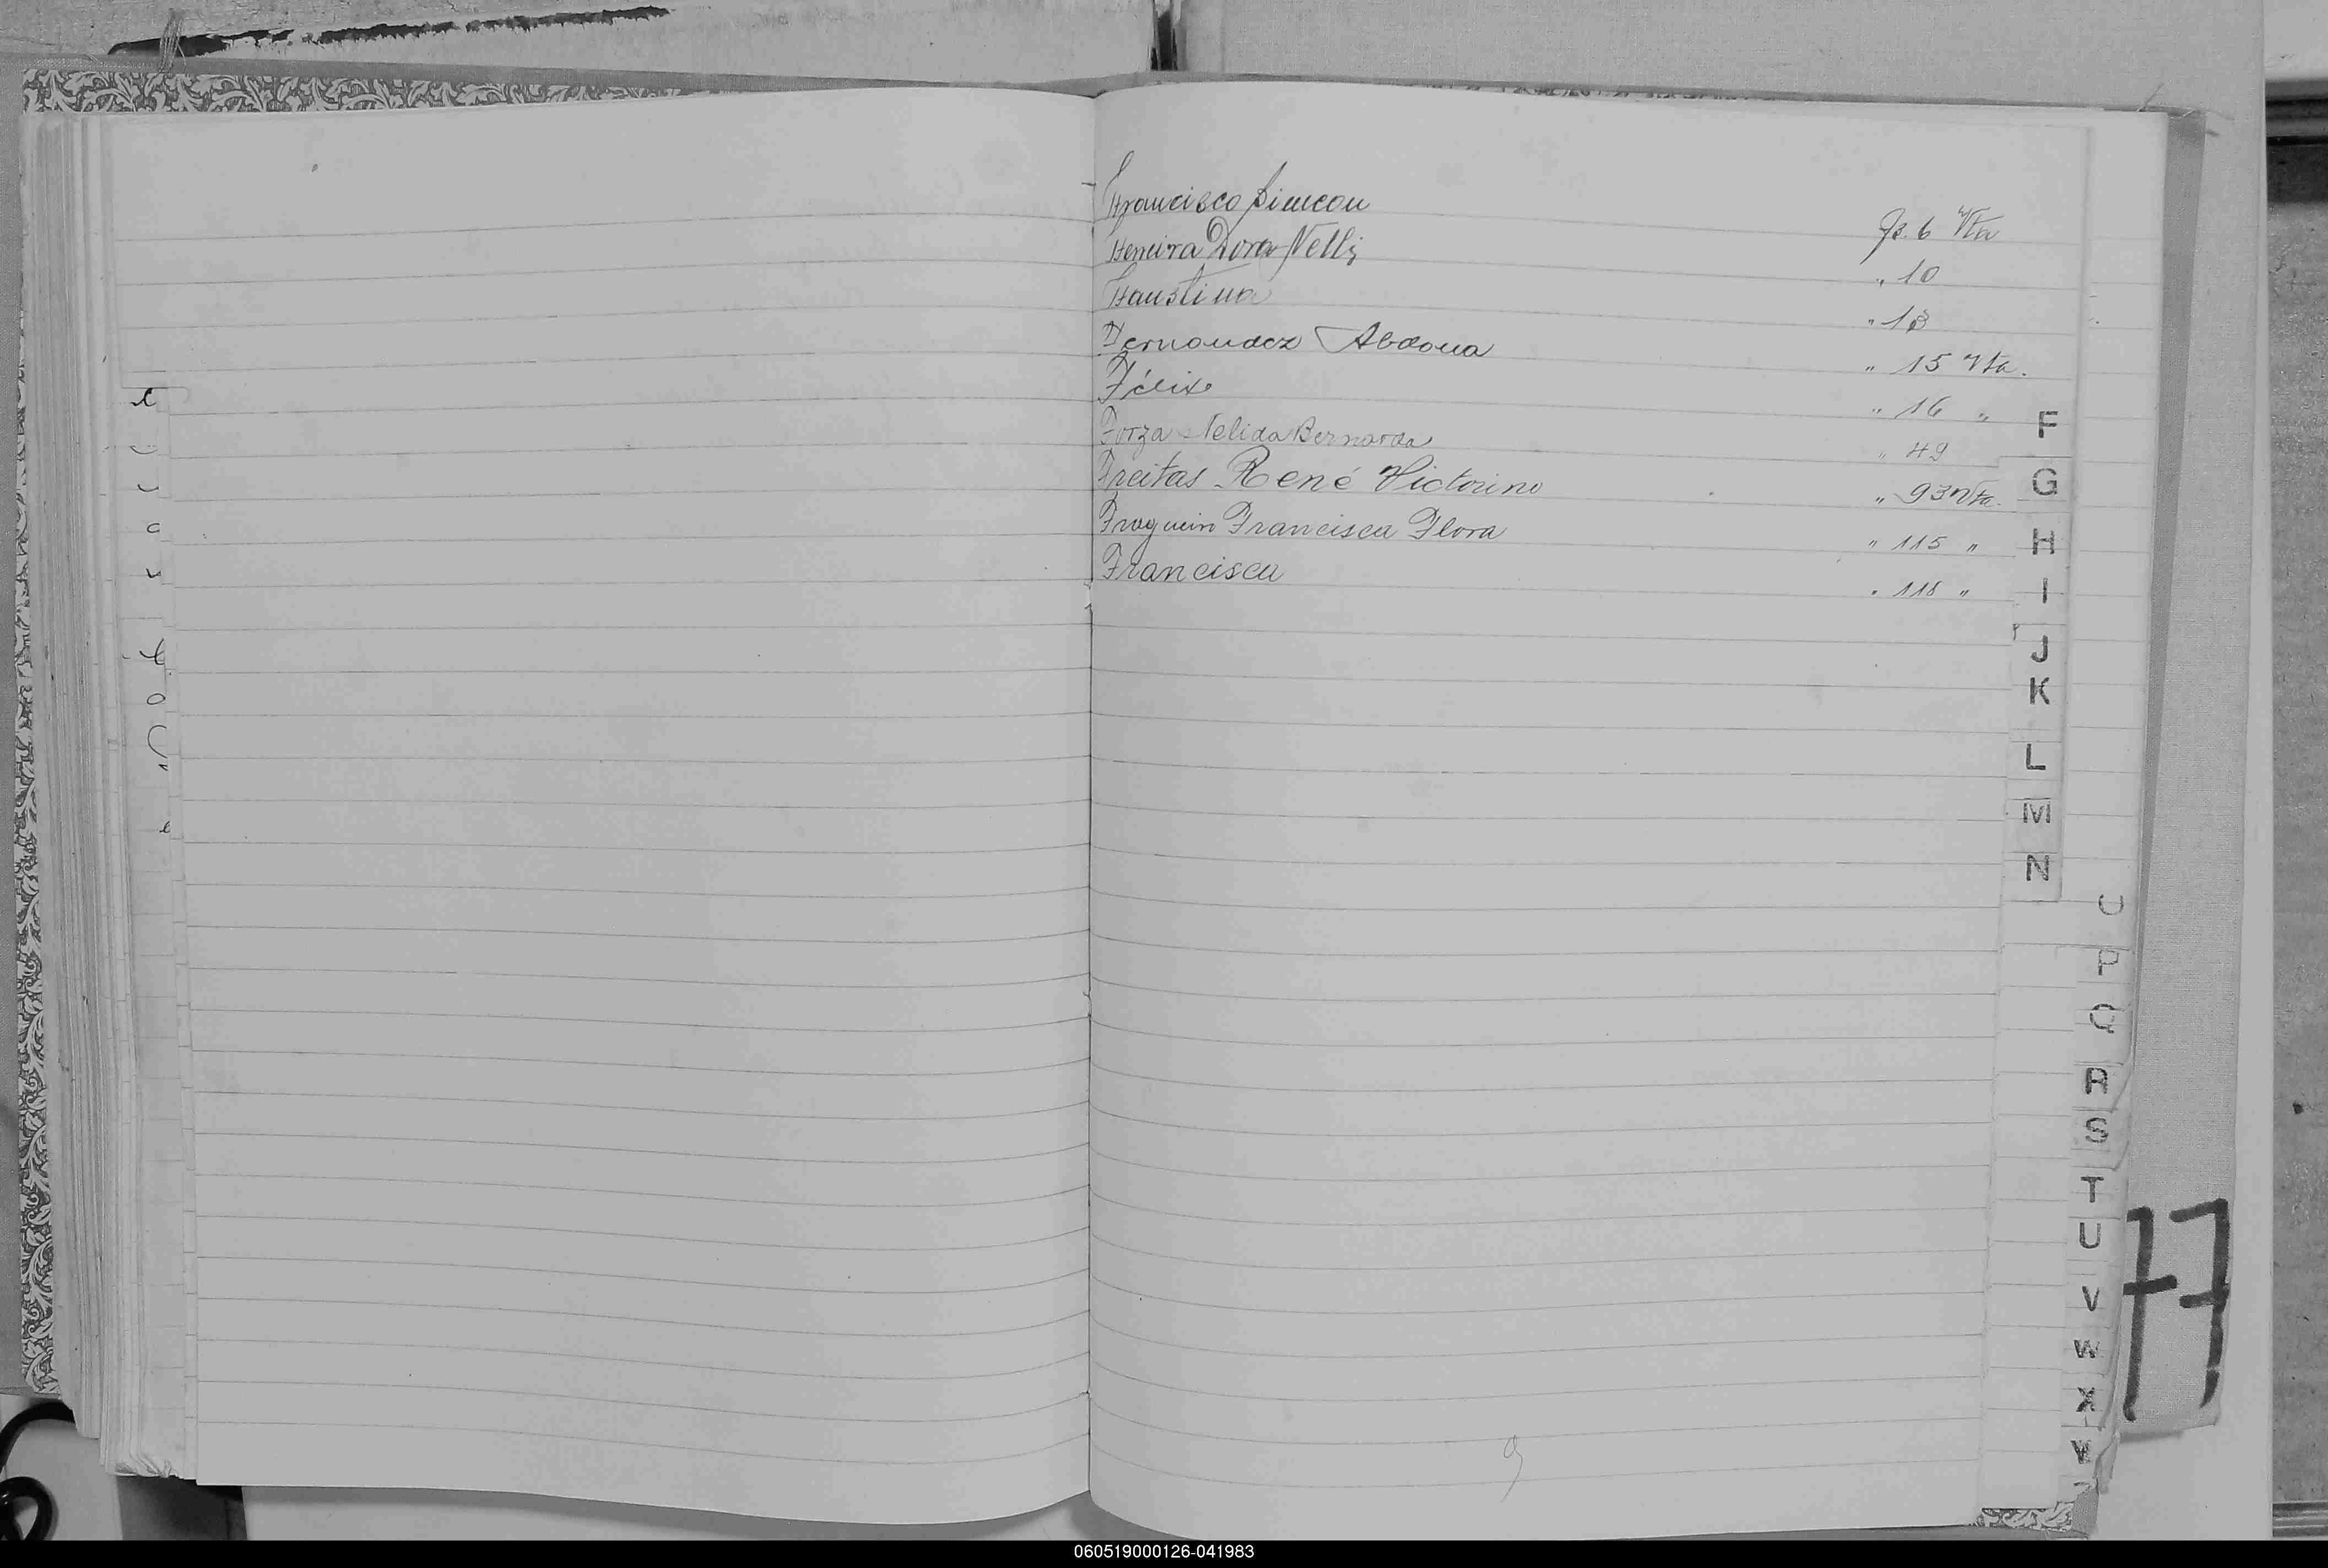 Francisco Simeon Fs. 6 Vta
Ferreira Dora Nelli " 10
Faustina " 13
Fernandez Abdona " 15 Vta.
Félix " 16 "
Forza Nelida Bernarda " 49
Freitas René Victorino " 93 Vta.
Fraguein Francisca Flora " 115 "
Francisca " 118 "
F
G
H
I
J
K
L
M
N
O
P
Q
R
S
T
U
V
W
X
Y
77
9
060519000126-041983